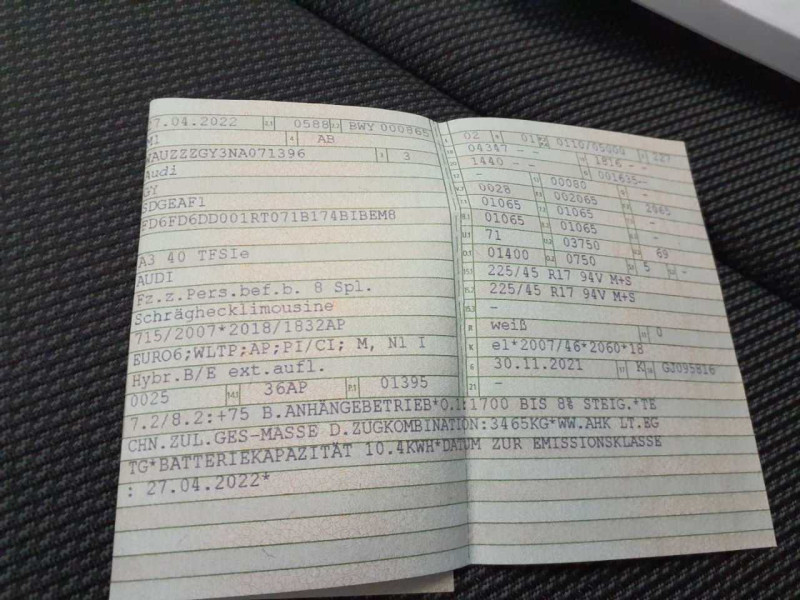 27.04.2022 0588 BWY 000865
M1 AB
WAUZZZGY3NA071396 3
Audi
GY
SDGEAF1
FD6FD6DD001RT071B174BIBEM8
A3 40 TFSIe
AUDI
Fz.z.Pers.bef.b. 8 Spl.
Schräghecklimousine
715/2007*2018/1832AP
EURO6;WLTP;AP;PI/CI; M, N1 I
Hybr.B/E ext.aufl.
0025 14.1 36AP P.1 01395
02 0110/05000 227
04347 - -
1440 - - 1816 - -
- 001635--
0028 00080 -
01065 002065 2965
01065 01065 -
01065 01065 -
71 03750 69
01400 0750 5 -
225/45 R17 94V M+S
225/45 R17 94V M+S
-
R weiß 0
K e1*2007/46*2060*18
6 30.11.2021 17 K GJ095816
21 -
7.2/8.2:+75 B.ANHÄNGEBETRIEB*O.1:1700 BIS 8% STEIG.*TE
CHN.ZUL.GES-MASSE D.ZUGKOMBINATION:3465KG*WW.AHK LT.EG
TG*BATTERIEKAPAZITÄT 10.4KWH*DATUM ZUR EMISSIONSKLASSE
: 27.04.2022*